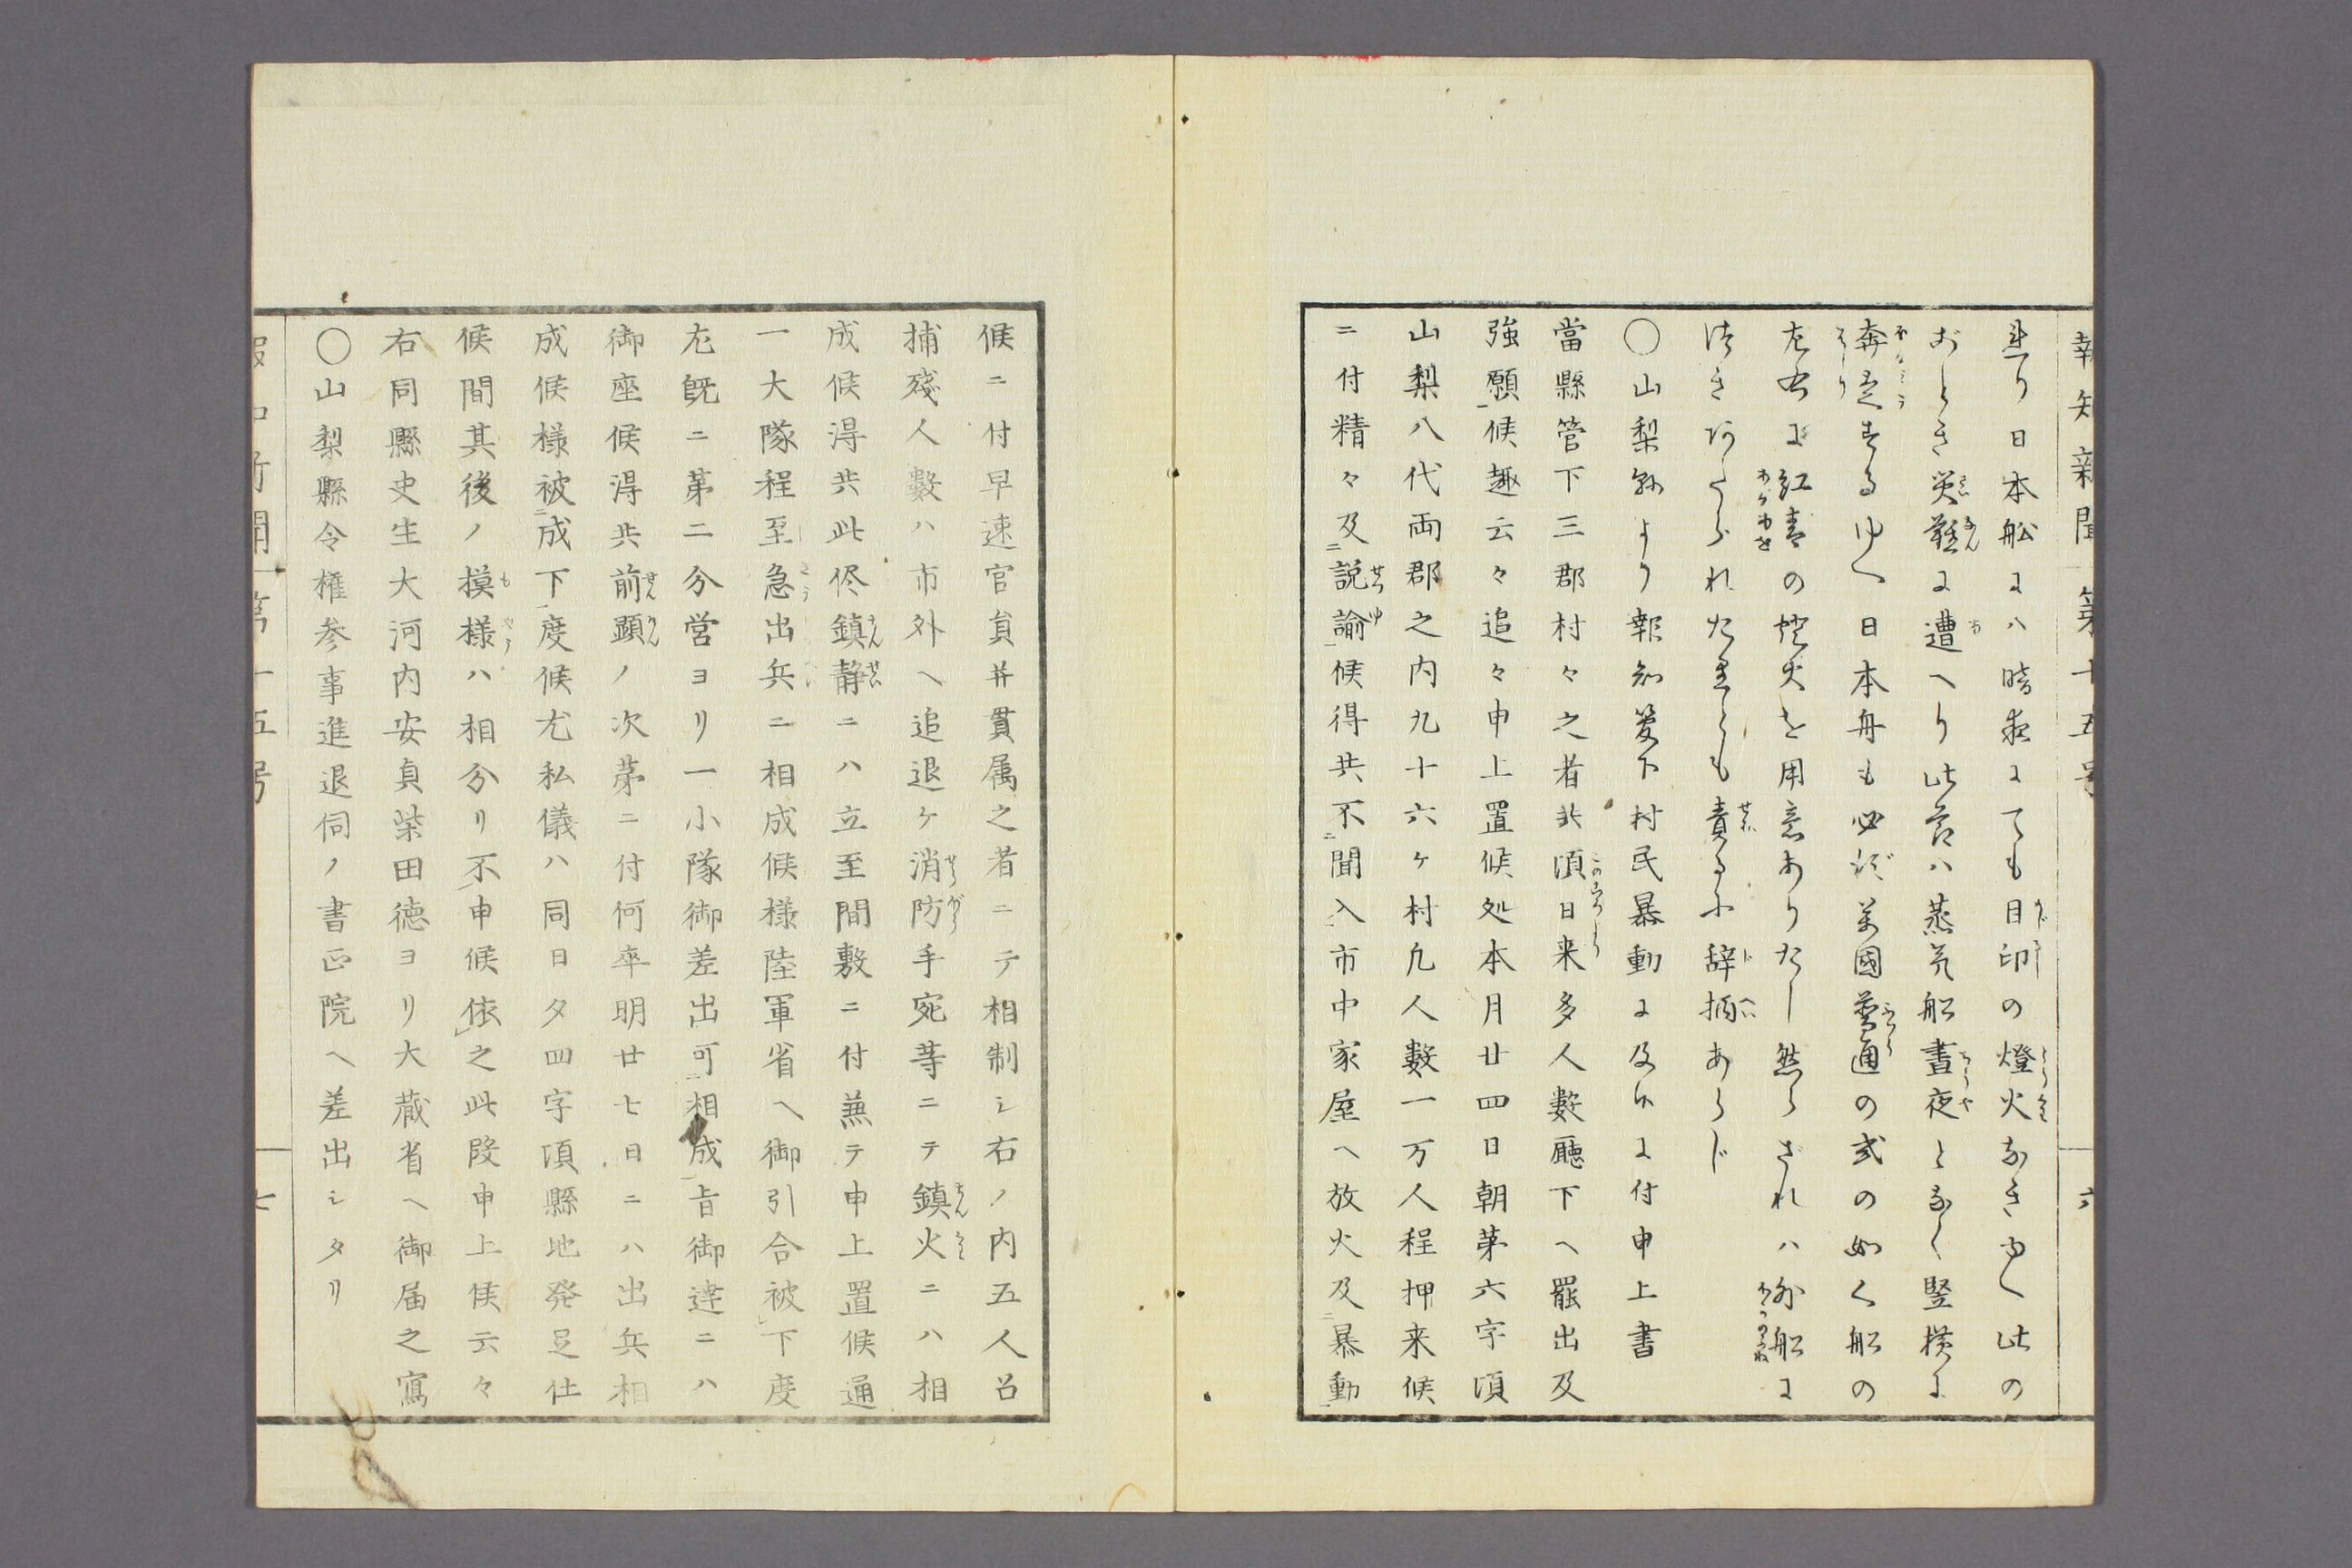 報知新聞 第十五号 六
達り日本舩ニハ暗夜にても目印の燈火なきゆへ此の
おとき災難に遭へり此節ハ蒸気舩昼夜となく竪横に
奔走するゆへ日本舟も必ず万國普通の式の如く船の
左右に紅青の燈火を用意ありたし然らざれハ外船に
つきあてられたりとも責るに辞柄あらじ
〇山梨縣より報知管下村民暴動に及候に付申上書
當縣管下三郡村々之者共此頃日来多人數廳下ヘ罷出及
強願候趣云々追々申上置候処本月廿四日朝第六字頃
山梨八代両郡之内九十六ヶ村凡人數一万人程押来候
ニ付精々及説諭候得共不聞入市中家屋ヘ放火及暴動
候ニ付早速官員并貫属之者ニテ相制シ右ノ内五人召
捕残人數ハ市外ヘ追退ケ消防手宛等ニテ鎮火ニハ相
成候得共此侭鎮静ニハ立至間敷ニ付兼テ申上置候通
一大隊程至急出兵ニ相成候様陸軍省ヘ御引合被下度
左既ニ第二分営ヨリ一小隊御差出可相成旨御達ニハ
御座候得共前顕ノ次第ニ付何卒明廿七日ニハ出兵相
成候様被成下度候尤私儀ハ同日夕四字頃縣地発足仕
候間其後ノ摸様ハ相分リ不申候依之此段申上候云々
右同縣史生大河内安貞柴田徳ヨリ大蔵省ヘ御届之寫
〇山梨縣令権参事進退伺ノ書正院ヘ差出シタリ
報知新聞 第十五号 七